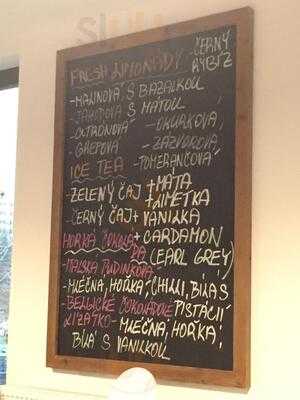 FRESH LIMONÁDY
- ČERNÝ RYBÍZ
- MALINOVÁ S BAZALKOU
- JAHODOVÁ S MÁTOU
- CITRONOVÁ - OKURKOVÁ,
- GREPOVÁ - ZÁZVOROVÁ,
- TOMERANČOVÁ
ICE TEA
- ZELENÝ ČAJ + MÁTA + LIMETKA
- ČERNÝ ČAJ + VANILKA + CARDAMON (EARL GREY)
HORKÁ ČOKOLÁDA
- ITALSKÁ PUDINKOVÁ
- MLÉČNÁ, HOŘKÁ, CHILLI, BÍLÁ S PISTÁCIÍ
- BELGICKÉ ČOKOLÁDOVÉ LÍZÁTKO - MLÉČNÁ, HOŘKÁ,
BÍLÁ S VANILKOU